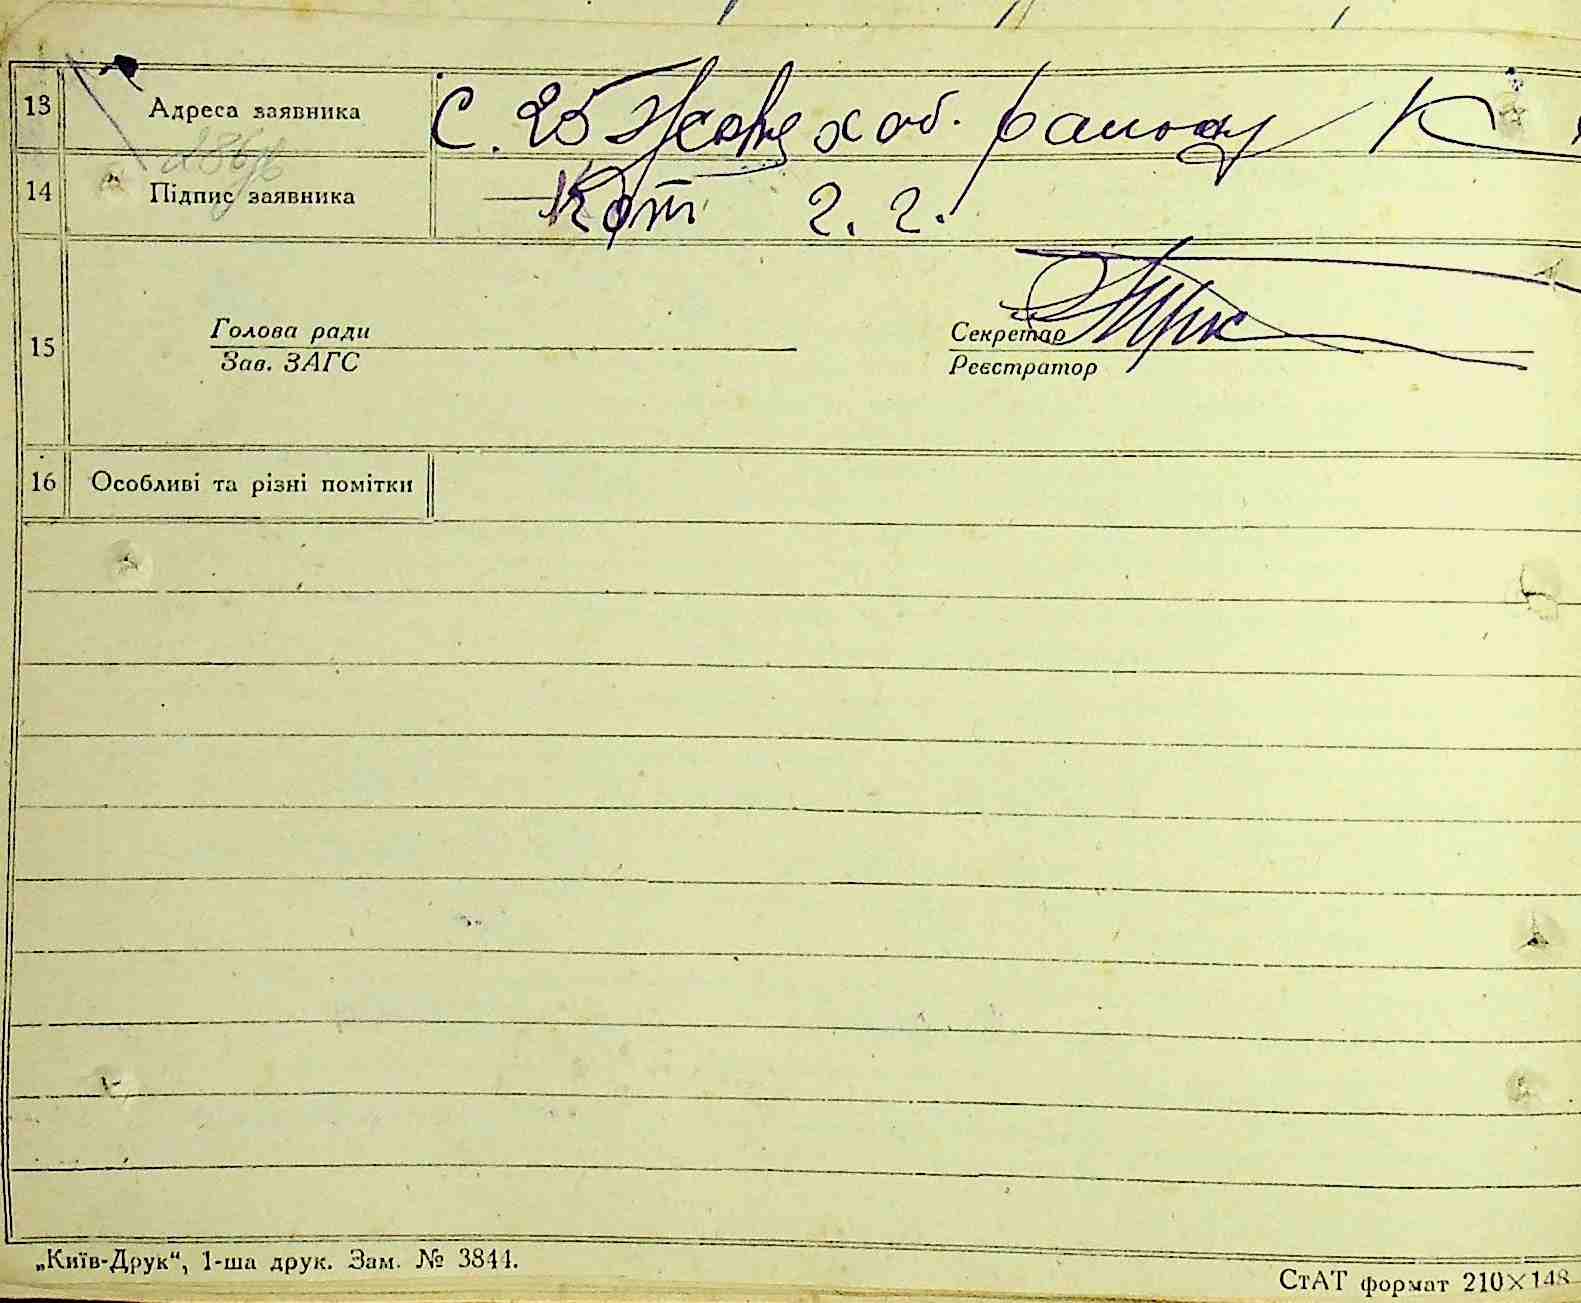 13 Адреса заявника С. 25 Жовт хоб. району К
14 Підпис заявника Кот г. г.
15 Голова ради Секретар
Зав. ЗАГС Реєстратор
16 Особливі та різні помітки
„Київ-Друк“, 1-ша друк. Зам. № 3844.
СтАТ формат 210×148